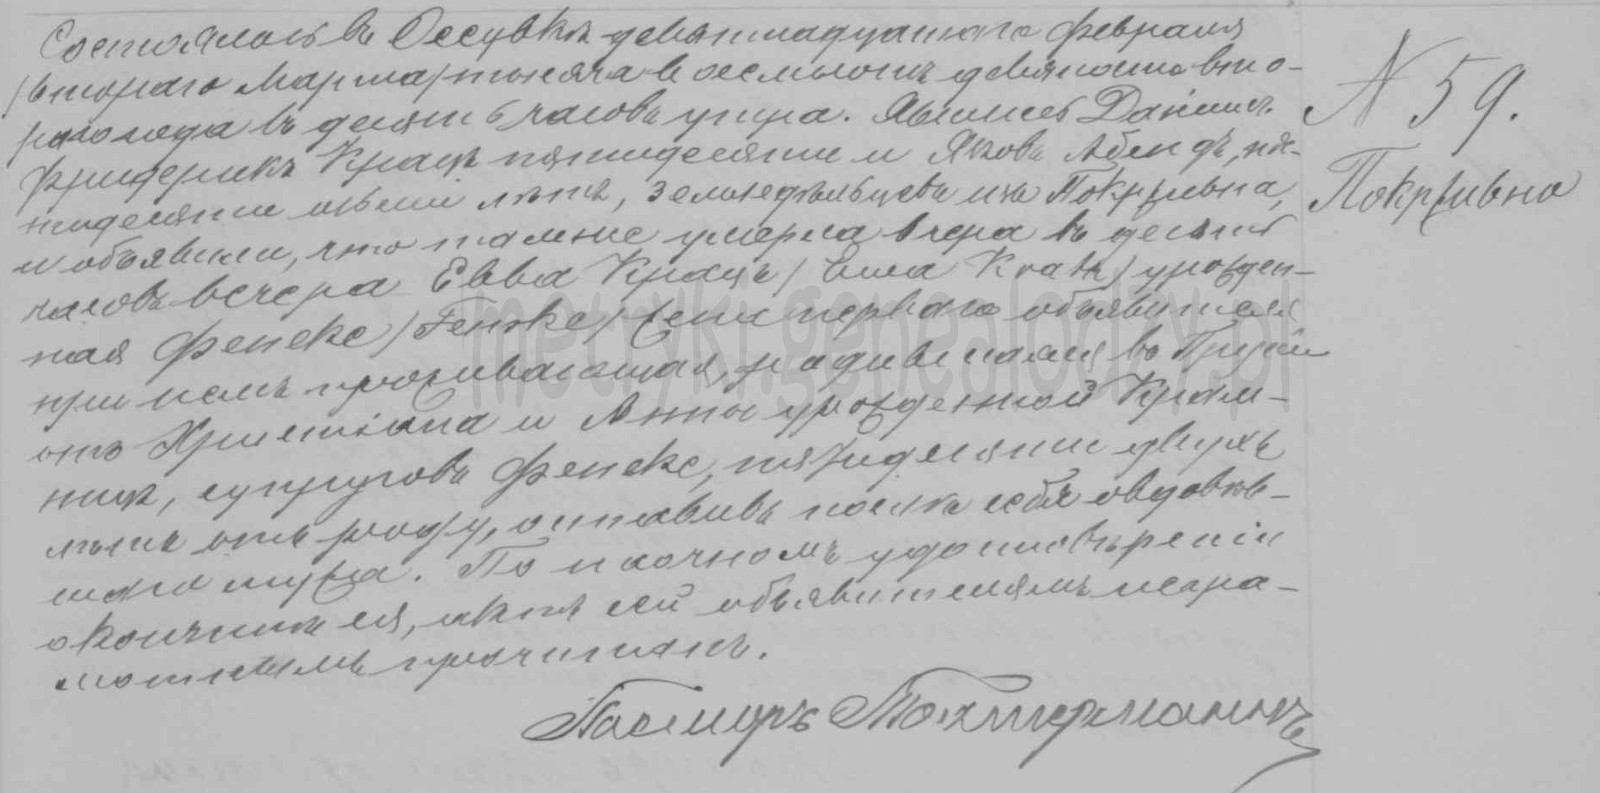 Состоялось въ Оссувкѣ девятнадцатаго Февраля
/втораго Марта/ тысяча восемьсотъ девяносто вто-
рого года въ десять часовъ утра. Явились Даніилъ
Фридерикъ Крацъ пятидесяти и Яковъ Абендъ, пя-
тидесяти семи лѣтъ, земледѣльцевъ изъ Покржывна,
и объявили, что тамъ же умерла вчера въ десять
часовъ вечера Евва Крацъ /Ewa Kratz/ урожден-
ная Фенске /Fenske/ жена перваго объявителя
при немъ проживающая, родившаяся въ Пруссіи
отъ Христіана и Анны урожденной Крам-
ницъ, супруговъ Фенске, пятидесяти двухъ
лѣтъ отъ роду, оставивъ послѣ себя овдовѣв-
шаго мужа. По наочномъ удостовѣреніи
о кончинѣ ея, актъ сей объявителямъ негра-
мотнымъ прочитанъ.
Пасторъ
N 59.
Покржывно
metryki.genealodzy.pl